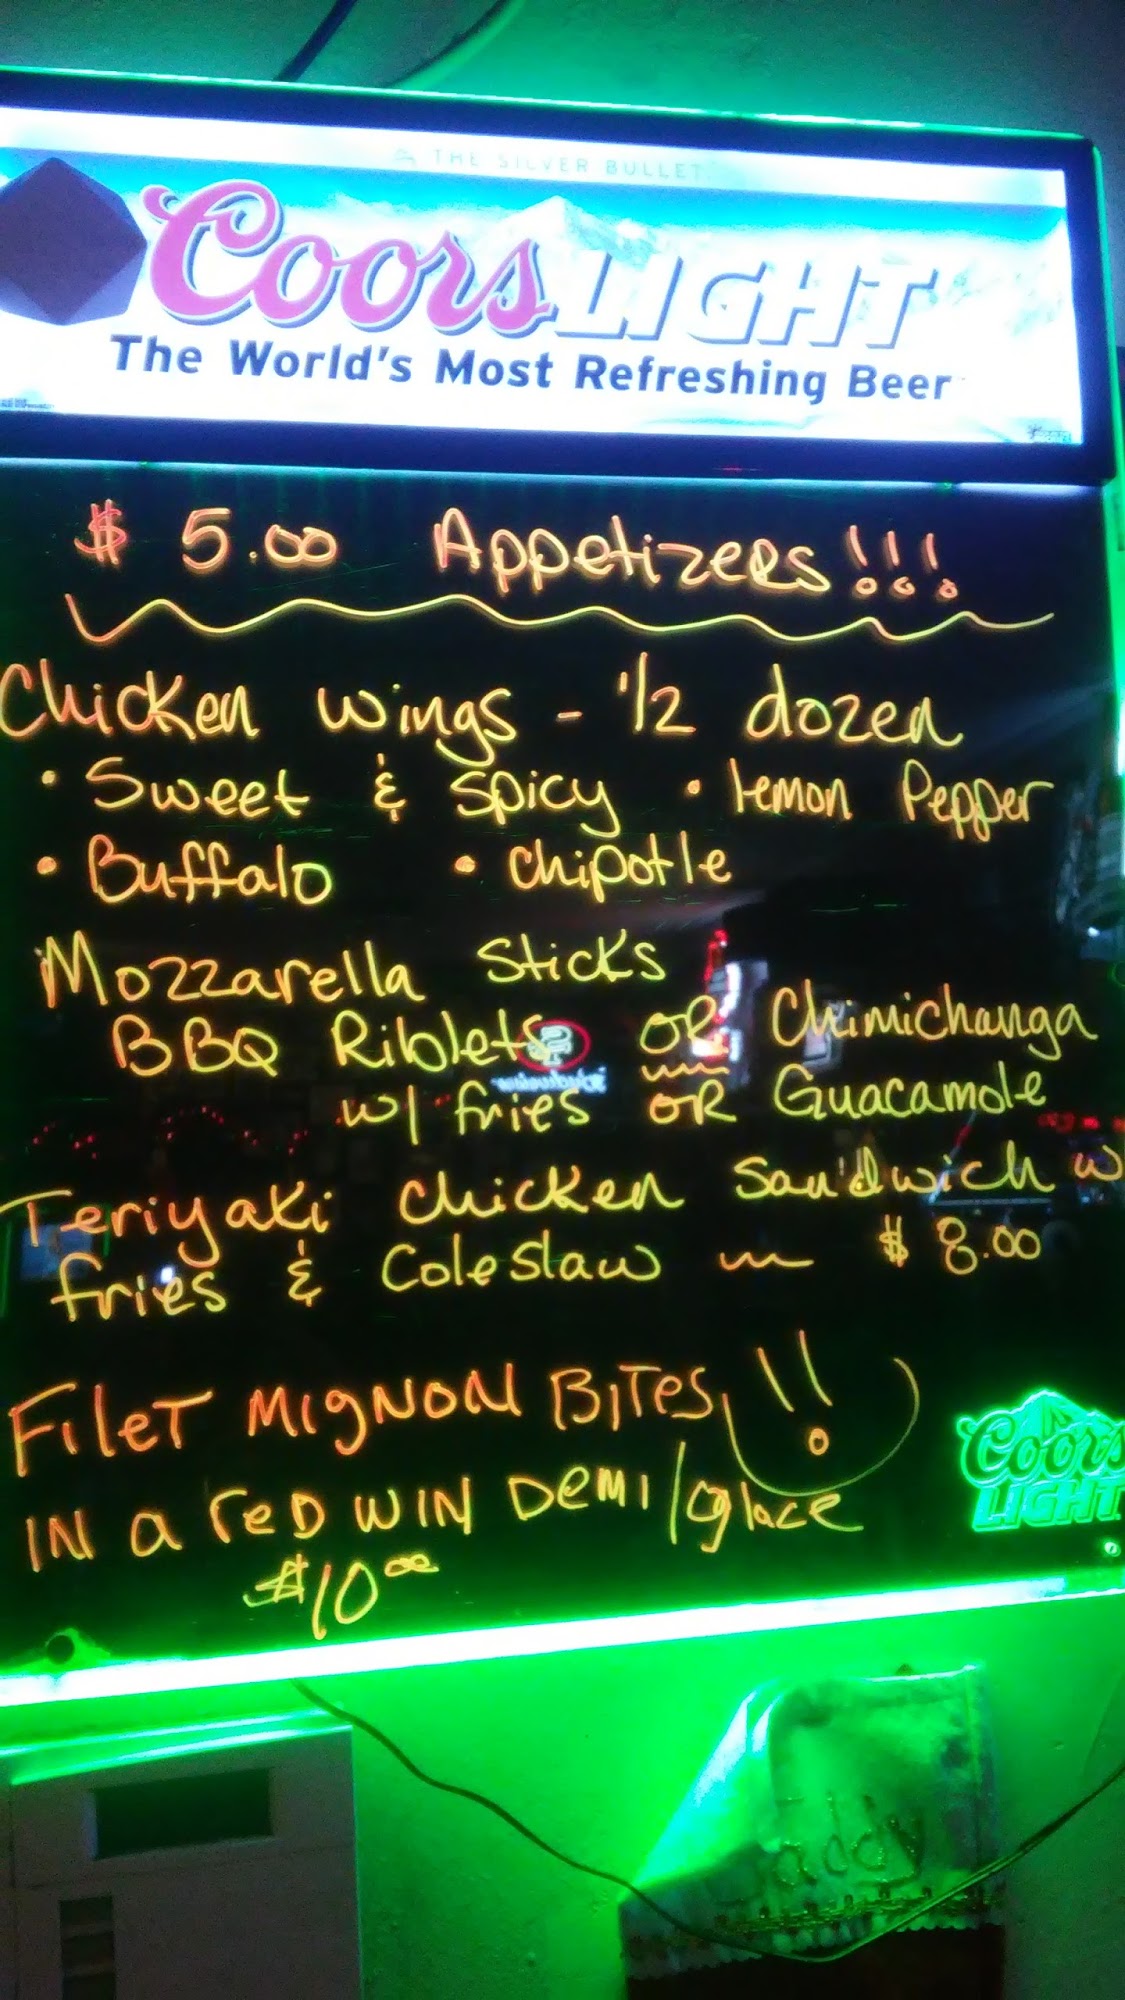 THE SILVER BULLET
Coors LIGHT
The World's Most Refreshing Beer
$ 5.00 Appetizers!!!
Chicken wings - 1/2 dozen
• Sweet & Spicy • lemon Pepper
• Buffalo • Chipotle
Mozzarella Sticks
BBQ Riblets OR Chimichanga
w/ fries OR Guacamole
Teriyaki chicken sandwich w
fries & Coleslaw ~ $ 8.00
FileT MigNON BiTes !!
IN a reD WIN Demi/glace
$10.00
Coors
LIGHT
Daddy